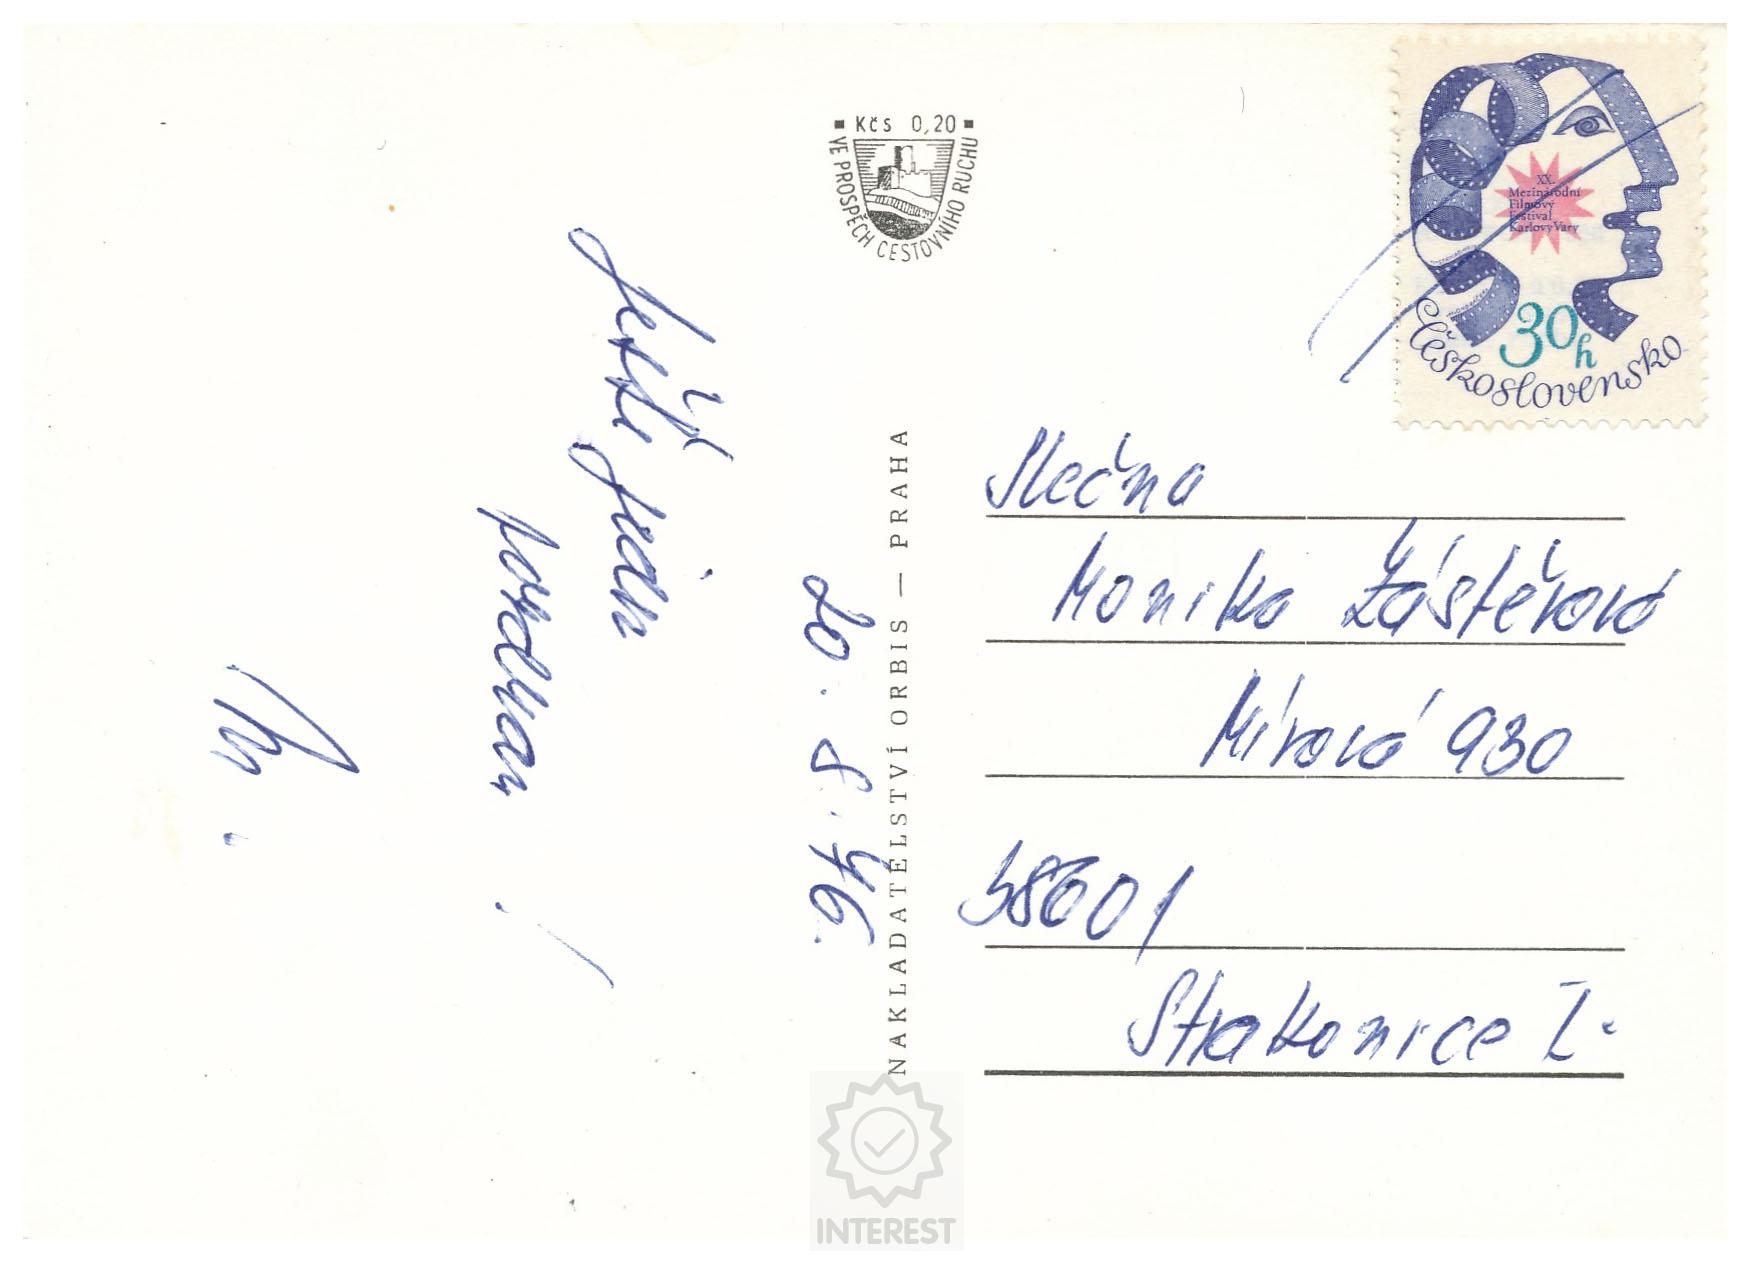 Kčs 0,20
VE PROSPĚCH CESTOVNÍHO RUCHU
XX.
Mezinárodní
Filmový
Festival
Karlovy Vary
30h
Československo
20. 8. 76.
Ještě jeden
pozdrav
!
NAKLADATELSTVÍ ORBIS — PRAHA
Slečna
Monika Zástěrová
Mírová 930
38601
Strakonice I.
INTEREST